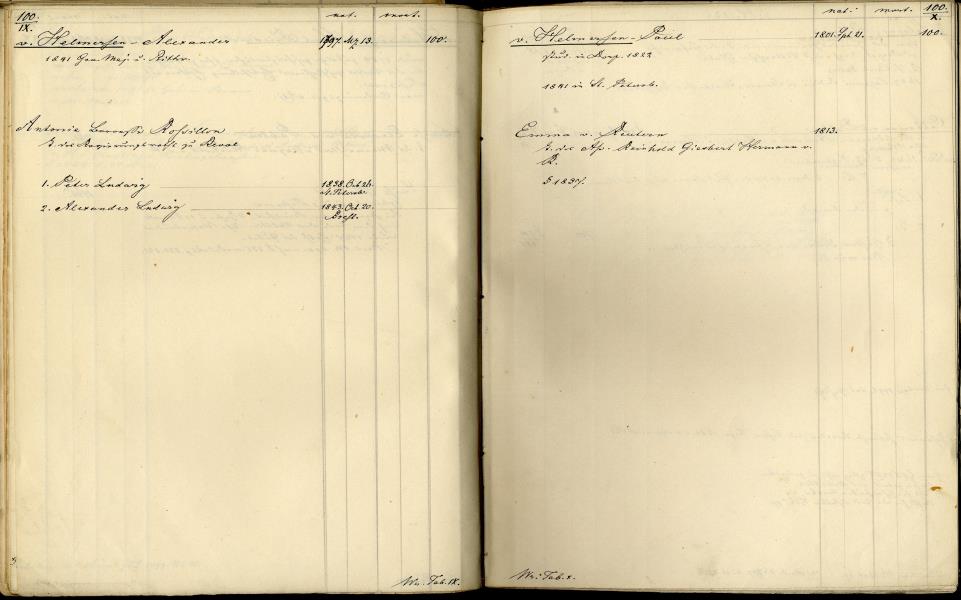 100. nat. mort.
IX.
v. Helmersen - Alexander 1797. Mz 13. 100.
1841 Gen. Maj. u. Rittr.
Antonie Baronesse Rossillon
T. des Regierungsrath zu Reval
1. Peter Ludwig 1838. Oct 26.
St. Petersb.
2. Alexander Ludwig 1843. Oct. 20.
Brest.
Wr. Tab. IX.
nat. mort. 100.
X.
v. Helmersen - Paul 1801. Spt. 21. 100.
stud. in Dorp. 1822
1841 in St. Petersb.
Emma v. Reutern 1813.
T. des Ass. Reinhold Giesbert Hermann v.
R.
1837.
Wr. Tab. X.